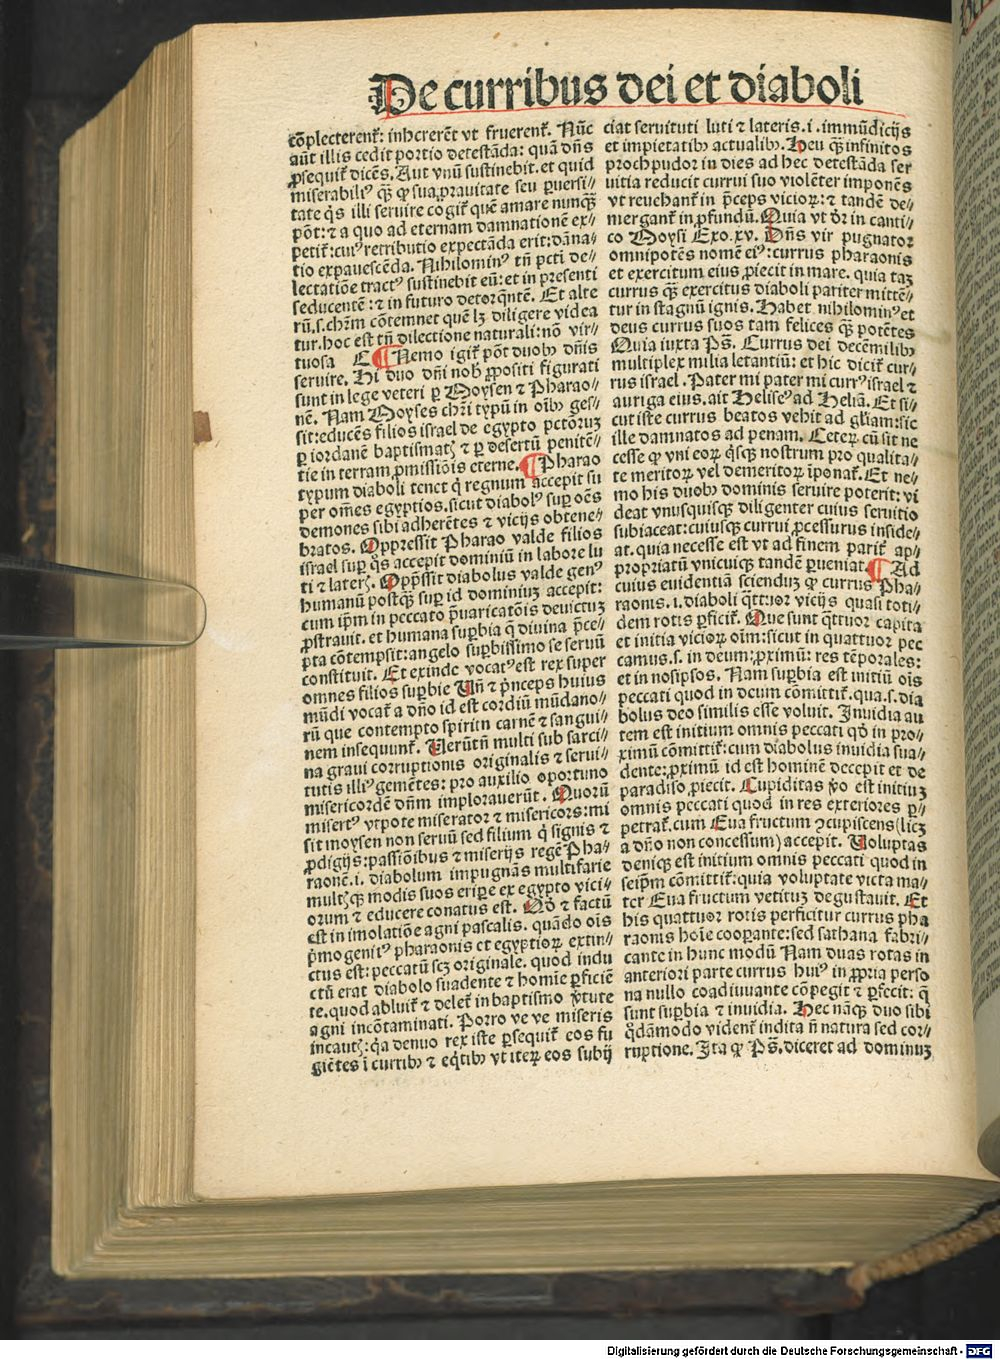 De curribus dei et diaboli
cōplecterent᷑: inhererēt vt fruerent᷑. Nūc
aūt illis cedit portio detestāda: quā dn̄s
ꝓsequit᷑ dicēs. Aut vnū sustinebit. et quid
miserabiliꝰ qȝ ꝙ sua prauitate seu ꝑuersi-
tate q̄s illi seruire cogit᷑ quē amare nunqȝ
pōt: ⁊ a quo ad eternam damnationē ex-
petit᷑: cuiꝰ retributio expectāda erit: dāna-
tio expauescēda. Nihilominꝰ tn̄ pcti de-
lectatiōe tractꝰ sustinebit eū: et in presenti
seducentē: ⁊ in futuro detorq̄ntē. Et alte
rū .s. chr̄m cōtemnet quē lȝ diligere videa
tur. hoc est tn̄ dilectione naturali: nō vir-
tuosa C ¶ Nemo igit᷑ pōt duobꝰ dn̄is
seruire. Hi duo dn̄i nob̄ ꝓpositi figurati
sunt in lege veteri ꝑ Moysen ⁊ Pharao-
nē. Nam Moyses chr̄i typū in oībꝰ ges-
sit: educēs filios israel de egypto pctōrum
ꝑ iordanē baptismatꝭ ⁊ ꝑ desertū penitē-
tie in terram ꝓmissiōis eterne. ¶ Pharao
typum diaboli tenet q̇ regnum accepit su
per om̄es egyptios. sicut diabolꝰ suꝑ oēs
demones sibi adherētes ⁊ vicijs obtene-
bratos. Oppressit Pharao valde filios
israel suꝑ q̄s accepit dominiū in labore lu
ti ⁊ laterꝭ. Opp̄ssit diabolus valde genꝰ
humanū postqȝ suꝑ id dominiuȝ accepit:
cum ip̄m in peccato p̄uaricatōis deuictuȝ
ꝓstrauit. et humana suꝑbia q̄ diuina p̄ce-
pta cōtempsit: angelo suꝑbissimo se seruū
constituit. Et exinde vocatꝰ est rex super
omnes filios suꝑbie Vn̄ ⁊ p̄nceps huius
mūdi vocat᷑ a dn̄o id est cordiū mūdano-
rū que contempto spiritu carnē ⁊ sangui-
nem insequunt᷑. Verūtn̄ multi sub sarci-
na graui corruptionis originalis ⁊ serui-
tutis illiꝰ gemētes: pro auxilio oportuno
misericordē dn̄m implorauerūt. Quorū
misertꝰ vtpote miserator ⁊ misericors: mi
sit moysen non seruū sed filium q̇ signis ⁊
ꝓdigijs: passiōibus ⁊ miserijs regē Pha-
raonē .i. diabolum impugnās multifarie
multꝭqȝ modis suos eriꝑe ex egypto vici-
orum ⁊ educere conatus est. Qd̄ ⁊ factū
est in imolatiōe agni pascalis. quādo ois
p̄mogenitꝰ pharaonis et egyptioꝝ extin-
ctus est: peccatū scȝ originale. quod indu
ctū erat diabolo suadente ⁊ homīe ꝑficiē
te. quod abluit᷑ ⁊ delet᷑ in baptismo v̄tute
agni incōtaminati. Porro ve ve miseris
incautꝭ: q̄a denuo rex iste ꝑsequit᷑ eos fu
giētes ī curribꝰ ⁊ eq̇tibꝰ vt iteꝝ eos subij
ciat seruituti luti ⁊ lateris .i. immūdicijs
et impietatibꝰ actualibꝰ. Heu qȝ infinitos
proch pudor in dies ad hec detestāda ser
uitia reducit currui suo violēter imponēs
vt reuehant᷑ in p̄ceps vicioꝝ: ⁊ tandē de-
mergant᷑ in ꝓfundū. Quia vt dr̄ in canti-
co Moysi Exo. xv. Dn̄s vir pugnator
omnipotēs nomē eiꝰ: currus pharaonis
et exercitum eius ꝓiecit in mare. quia tam
currus qȝ exercitus diaboli pariter mittē-
tur in stagnū ignis. Habet nihilominꝰ et
deus currus suos tam felices qȝ potētes
Quia iuxta Ps̄. Currus dei decēmilibꝰ
multiplex milia letantiū: et hic dicit᷑ cur-
rus israel. Pater mi pater mi currꝰ israel ⁊
auriga eius. ait Heliseꝰ ad Heliā. Et si-
cut iste currus beatos vehit ad gl̄iam: sic
ille damnatos ad penam. Ceteꝝ cū sit ne
cesse ꝙ vni eoꝝ q̇sqȝ nostrum pro qualita-
te meritoꝝ vel demeritoꝝ īponat᷑. Et ne-
mo his duobꝰ dominis seruire poterit: vi
deat vnusquisqȝ diligenter cuius seruitio
subiaceat: cuiusqȝ currui ꝓcessurus inside-
at. quia necesse est vt ad finem parit᷑ ap-
propriatū vnicuiqȝ tandē ꝑueniat. ¶ Ad
cuius euidentiā sciendum ꝙ currus Pha-
raonis .i. diaboli q̄ttuor vicijs quasi toti-
dem rotis ꝑficit᷑. Que sunt q̄ttuor capita
et initia vicioꝝ oīm: sicut in quattuor pec
camus .s. in deum: ꝓximū: res tēporales:
et in nosipsos. Nam suꝑbia est initiū ois
peccati quod in deum cōmittit᷑. qua .s. dia
bolus deo similis esse voluit. Inuidia au
tem est initium omnis peccati qd̄ in pro-
ximū cōmittit᷑: cum diabolus inuidia sua-
dente: ꝓximū id est hominē decepit et de
paradiso ꝓiecit. Cupiditas v̄o est initiuȝ
omnis peccati quod in res exteriores ꝑ-
petrat᷑. cum Eua fructum ꝯcupiscens (licȝ
a dn̄o non concessum) accepit. Voluptas
deniqȝ est initium omnis peccati quod in
seip̄m cōmittit᷑: quia voluptate victa ma-
ter Eua fructum vetituȝ degustauit. Et
his quattuor rotis perficitur currus pha
raonis hoīe cooꝑante: sed sathana fabri-
cante in hunc modū Nam duas rotas in
anteriori parte currus huiꝰ in ꝓpria perso
na nullo coadiuuante cōpegit ⁊ ꝑfecit: q̄
sunt suꝑbia ⁊ inuidia. Hec nāqȝ duo sibi
q̄dāmodo vident᷑ indita n̄ natura sed cor-
ruptione. Ita ꝙ Ps̄. diceret ad dominuȝ
Digitalisierung gefördert durch die Deutsche Forschungsgemeinschaft - DFG